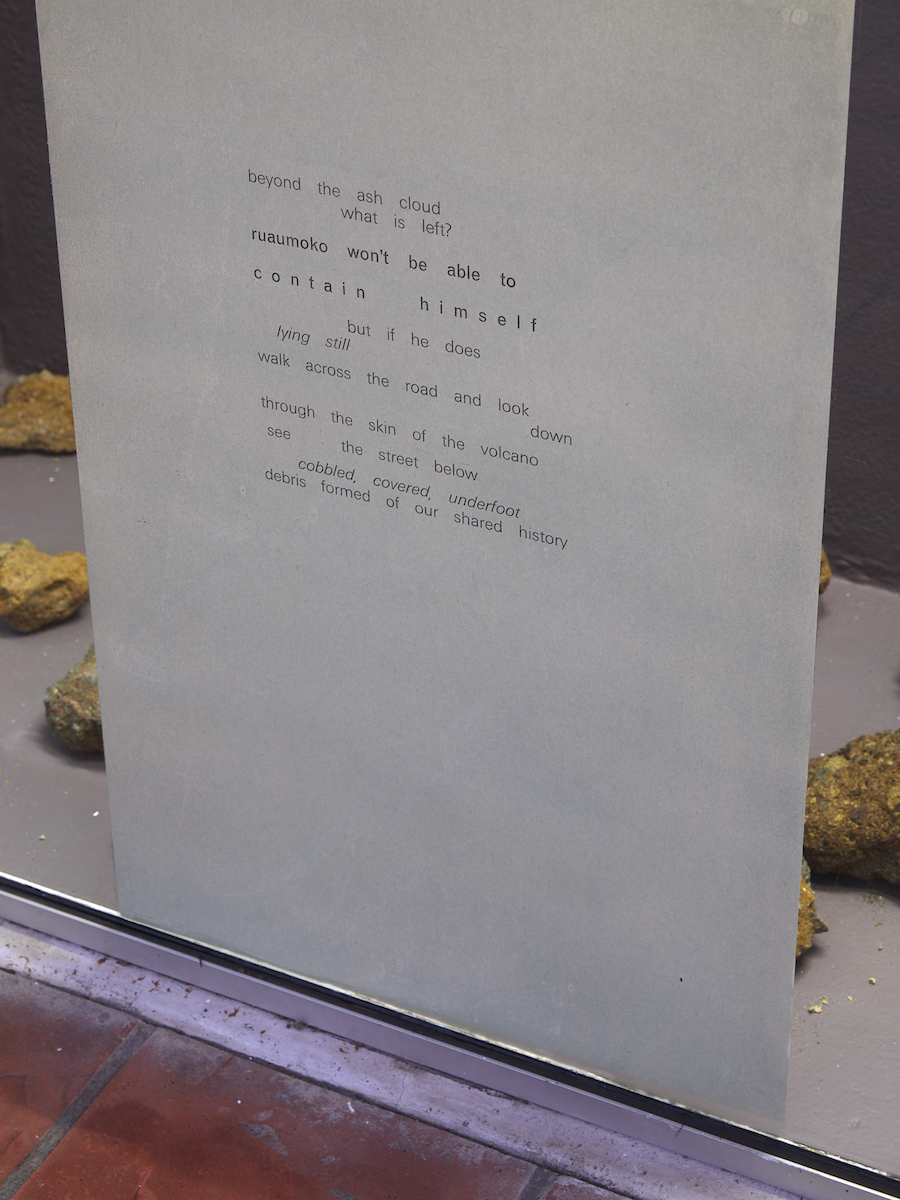 beyond the ash cloud
what is left?
ruaumoko won't be able to
contain himself
but if he does
lying still
walk across the road and look
down
through the skin of the volcano
see the street below
cobbled, covered, underfoot
debris formed of our shared history